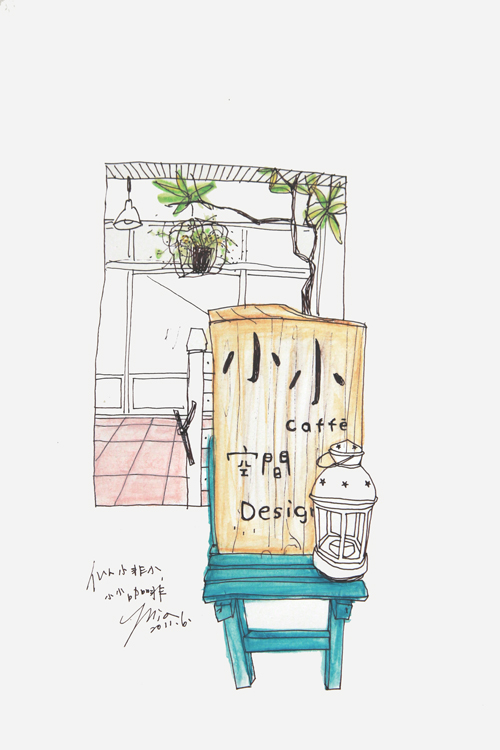 小小
Caffē
空間
Design
似小非小,
小小咖啡
Mia
2011.6.